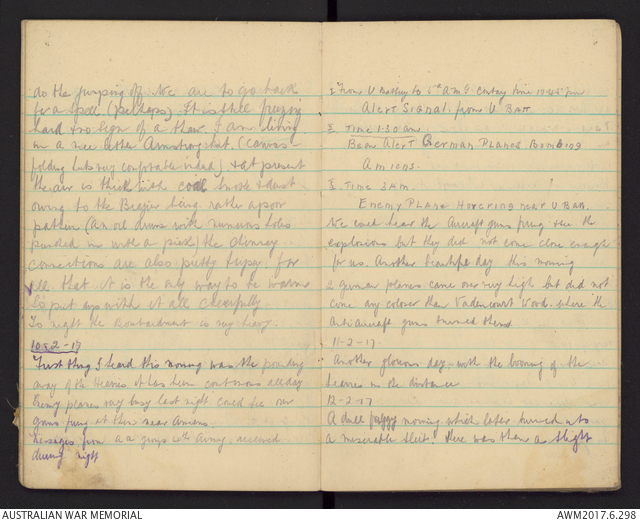 do the jumping off. We are to go back
for a spell (perhaps). It is still freezing
hard & no sign of a thaw. I am living
in a nice little Armstrong hut. (canvas
folding huts very comfortable indeed) & at present
the air is thick with coal smoke & dust
owing to the Brazier being rather a poor
pattern (an oil drum with numerous holes
punched in with a pick) the chimney
connections are also pretty tipsy. for
all that it is the only way to be warm
so put up with it all cheerfully.
To night the Bombardment is very heavy.
10-2-17
First thing I heard this morning was the pounding
away of the Heavies. it has been continuous all day
Enemy planes very busy last night could see our
guns firing at them near Amiens.
Messages from a a group 4th Army received
during night
From U Battery to 6th A.M.S. Contay time 10.45 pm
Alert Signal from U Batt
Time 1.30 am
Been Alert German Planes Bombing
Amiens.
Time 3 AM
Enemy Plane Hovering near U Batt.
We could hear the Aircraft guns firing & see the
explosions but they did not come close enough
for us. Another beautiful day this morning
2 german planes came over very high but did not
come any closer than Vadencourt Wood. where the
Anti Aircraft guns turned them
11-2-17
Another glorious day with the booming of the
heavies in the distance
12-2-17
A dull foggy morning which later turned into
a miserable sleet. there was then a slight
AUSTRALIAN WAR MEMORIAL
AWM2017.6.298